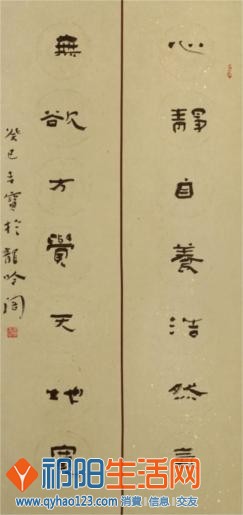 心靜自養浩然
無欲方覺天地寬
癸巳吉寶於龍吟阁
祁阳生活网
www.qyhao123.com 消费 信息 交友